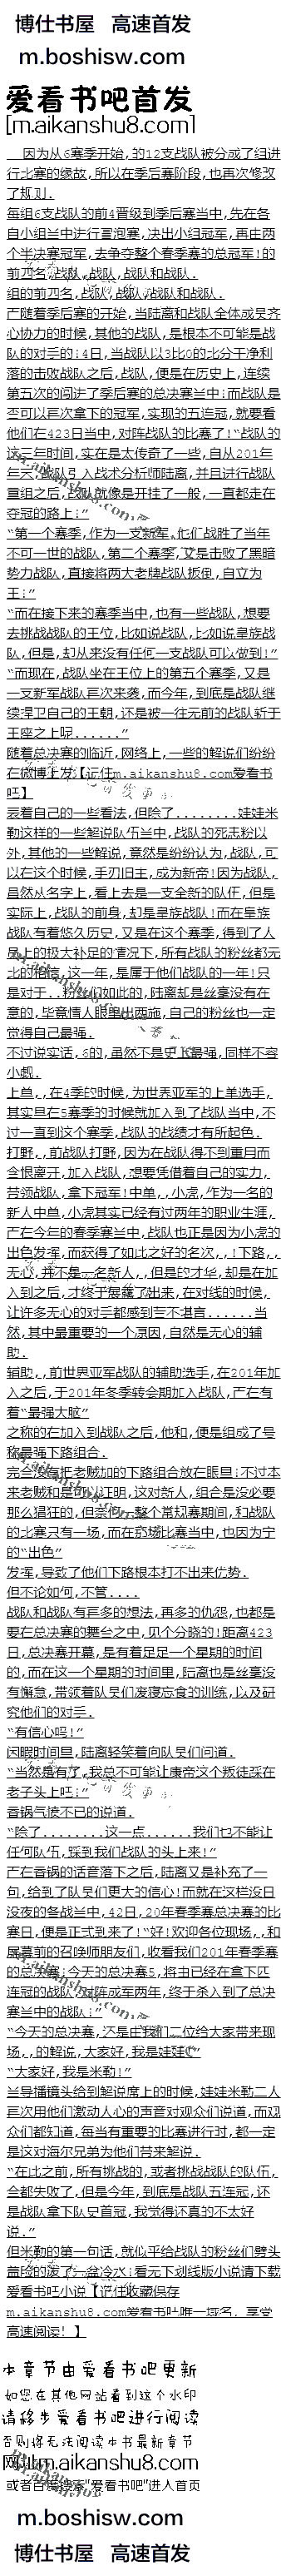 博仕书屋 高速首发
m.boshisw.com
爱看书吧首发
[m.aikanshu8.com]
因为从6赛季开始,的12支战队被分成了组进
行比赛的缘故,所以在季后赛阶段,也再次修改
了规则.
每组6支战队的前4晋级到季后赛当中,先在各
自小组当中进行冒泡赛,决出小组冠军,再由两
个半决赛冠军,去争夺整个春季赛的总冠军!的
前四名,战队,战队,战队和战队.
组的前四名,战队,战队,战队和战队.
而随着季后赛的开始,当陆离和战队全体成员齐
心协力的时候,其他的战队,是根本不可能是战
队的对手的:4日,当战队以3比0的比分干净利
落的击败战队之后,战队,便是在历史上,连续
第五次的闯进了季后赛的总决赛当中:而战队是
否可以再次拿下的冠军,实现的五连冠,就要看
他们在423日当中,对阵战队的比赛了!“战队的
这三年时间,实在是太传奇了一些,自从201年
年末,战队引入战术分析师陆离,并且进行战队
重组之后,战队就像是开挂了一般,一直都走在
夺冠的路上:”
“第一个赛季,作为一支新军,他们战胜了当年
不可一世的战队,第二个赛季,又是击败了黑暗
势力战队,直接将两大老牌战队扳倒,自立为
王:”
“而在接下来的赛季当中,也有一些战队,想要
去挑战战队的王位,比如说战队,比如说皇族战
队,但是,却从来没有任何一支战队可以做到!”
“而现在,战队坐在王位上的第五个赛季,又是
一支新军战队再次来袭,而今年,到底是战队继
续捍卫自己的王朝,还是被一往无前的战队斩于
王座之上呢......”
随着总决赛的临近,网络上,一些的解说们纷纷
在微博上发【记住m.aikanshu8.com爱看书
吧】
表着自己的一些看法,但除了........娃娃米
勒这样的一些解说队伍当中,战队的死忠粉以
外,其他的一些解说,竟然是纷纷认为,战队,可
以在这个时候,手刃旧主,成为新帝:因为战队,
虽然从名字上,看上去是一支全新的队伍,但是
实际上,战队的前身,却是皇族战队!而在皇族
战队有着悠久历史,又是在这个赛季,得到了人
员上的极大补足的情况下,所有战队的粉丝都无
比的相信,这一年,是属于他们战队的一年!只
是对于..粉丝们如此的,陆离却是丝毫没有在
意的,毕竟情人眼里出西施,自己的粉丝也一定
觉得自己最强.
不过说实话,6的,虽然不是史上最强,同样不容
小觑.
上单,,在4季的时候,为世界亚军的上单选手,
其实早在5赛季的时候就加入到了战队当中,不
过一直到这个赛季,战队的战绩才有所起色.
打野,,前战队打野,因为在战队得不到重用而
含恨离开,加入战队,想要凭借着自己的实力,
带领战队,拿下冠军!中单,,小虎,作为一名的
新人中单,小虎其实已经有过两年的职业生涯,
而在今年的春季赛当中,战队也正是因为小虎的
出色发挥,而获得了如此之好的名次,,!下路,,
无心,并不是一名新人,,但是的才华,却是在加
入到之后,才终于展露了出来,在对线的时候,
让许多无心的对手都感到苦不堪言......当
然,其中最重要的一个原因,自然是无心的辅
助.
辅助,,前世界亚军战队的辅助选手,在201年加
入之后,于201年冬季转会期加入战队,而在有
着“最强大眩”
之称的在加入到战队之后,他和,便是组成了号
称最强下路组合.
完全没有把老贼加的下路组合放在眼里:不过本
来老贼和是可以证明,这对新人,组合是没必要
那么猖狂的,但奈何一整个常规赛期间,和战队
的比赛只有一场,而在京场比赛当中,也因为宁
的“出色”
发挥,导致了他们下路根本打不出来优势.
但不论如何,不管....
战队和战队有再多的想法,再多的仇怨,也都是
要在总决赛的舞台之中,见个分晓的!距离423
日,总决赛开幕,是有着足足一个星期的时间
的,而在这一个星期的时间里,陆离也是丝毫没
有懈怠,带领着队员们废寝忘食的训练,以及研
究他们的对手.
“有信心吗!”
闲暇时间里,陆离轻笑着向队员们问道.
“当然是有了,我总不可能让康帝这个叛徒踩在
老子头上吧:”
香锅气愤不已的说道.
“除了........这一点......我们也不能让
任何队伍,踩到我们战队的头上来!”
而在香锅的话音落下之后,陆离又是补充了一
句,给到了队员们更大的信心!而就在这样没日
没夜的备战当中,42日,20年春季赛总决赛的比
赛日,便是正式到来了!“好!欢迎各位现场,,和
屏幕前的召唤师朋友们,收看我们201年春季赛
的总决赛:今天的总决赛5,将由已经在拿下四
连冠的战队,对阵成军两年,终于杀入到了总决
赛当中的战队:”
“今天的总决赛,还是由我们二位给大家带来现
场,,的解说,大家好,我是娃娃”
“大家好,我是米勒!”
当导播镜头给到解说席上的时候,娃娃米勒二人
再次用他们激动人心的声音对观众们说道,而观
众们都知道,每当有重要的比赛进行时,都一定
是这对海尔兄弟为他们带来解说.
“在此之前,所有挑战的,或者挑战战队的队伍,
全都失败了,但是今年,到底是战队五连冠,还
是战队拿下队史首冠,我觉得还真的不太好
说.”
但米勒的第一句话,就似乎给战队的粉丝们劈头
盖脸的泼了一盆冷水:看无下划线版小说请下载
爱看书吧小说【记住收藏保存
m.aikanshu8.com爱看书吧唯一域名，享受
高速阅读！】
本章节由爱看书吧更新
如您在其他网站看到这个水印
请移步爱看书吧进行阅读
否则将无法阅读本书最新章节
网址m.aikanshu8.com
或者百度搜索"爱看书吧"进入首页
m.boshisw.com
博仕书屋 高速首发